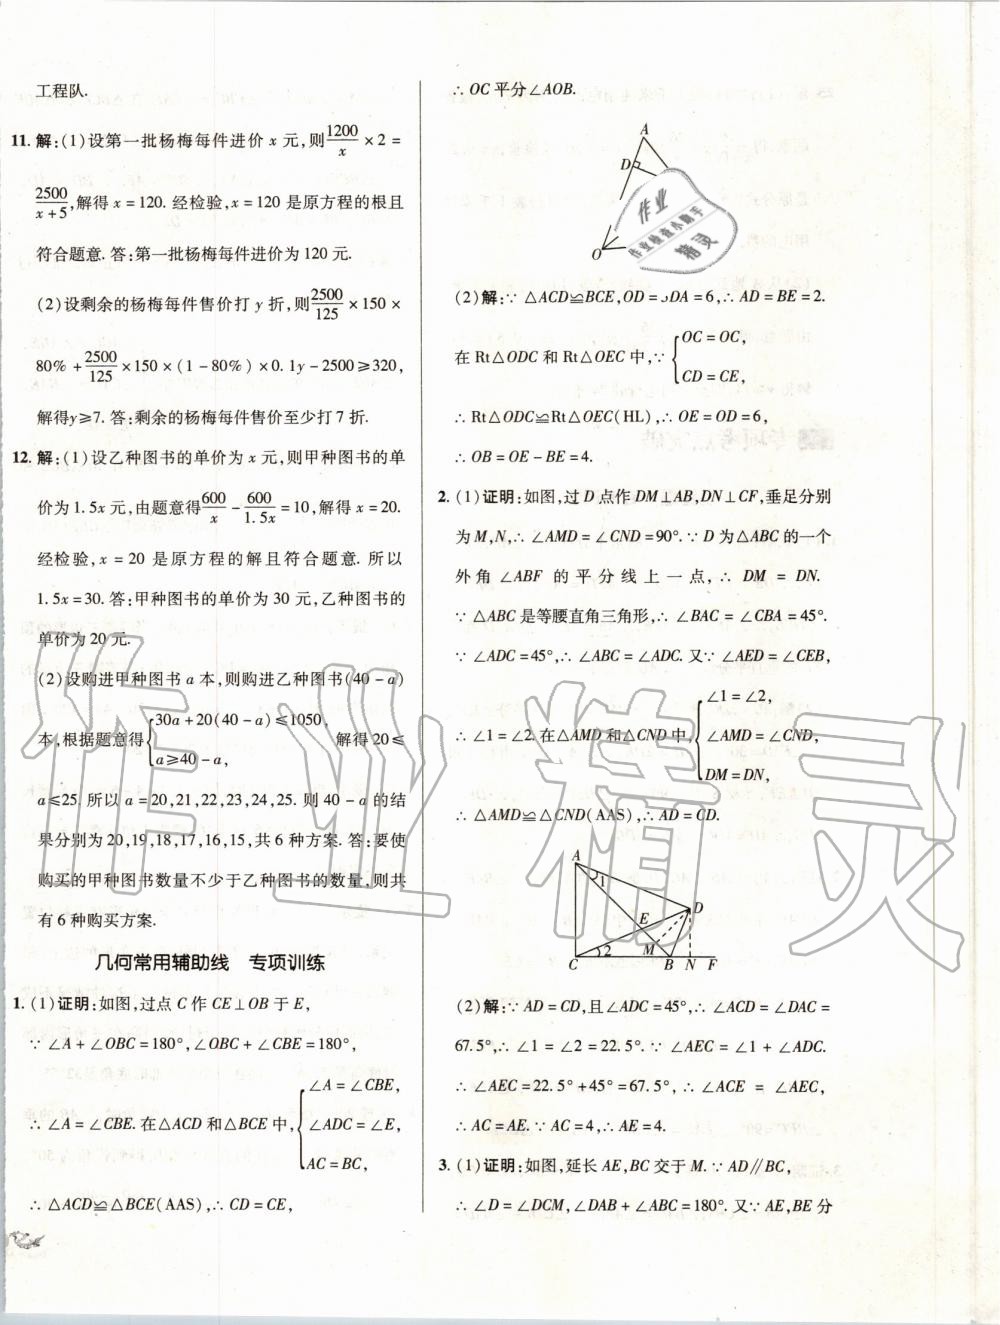 工程队.
11. 解:(1)设第一批杨梅每件进价 x 元,则1200/x × 2 =
2500/(x+5),解得 x = 120. 经检验,x = 120 是原方程的根且
符合题意. 答:第一批杨梅每件进价为 120 元.
(2)设剩余的杨梅每件售价打 y 折,则2500/125 × 150 ×
80% + 2500/125 × 150 × (1 - 80%) × 0. 1y - 2500 ≥ 320,
解得y≥7. 答:剩余的杨梅每件售价至少打 7 折.
12. 解:(1)设乙种图书的单价为 x 元,则甲种图书的单
价为 1. 5x 元,由题意得600/x - 600/1. 5x = 10,解得 x = 20.
经检验,x = 20 是原方程的解且符合题意. 所以
1. 5x = 30. 答:甲种图书的单价为 30 元,乙种图书的
单价为 20 元.
(2)设购进甲种图书 a 本,则购进乙种图书(40 - a)
本,根据题意得{30a + 20(40 - a) ≤ 1050, a ≥ 40 - a, 解得 20 ≤
a ≤ 25. 所以 a = 20,21,22,23,24,25. 则 40 - a 的结
果分别为 20,19,18,17,16,15,共 6 种方案. 答:要使
购买的甲种图书数量不少于乙种图书的数量,则共
有 6 种购买方案.
几何常用辅助线 专项训练
1. (1)证明:如图,过点 C 作 CE⊥OB 于 E,
∵ ∠A + ∠OBC = 180°,∠OBC + ∠CBE = 180°,
∴ ∠A = ∠CBE. 在△ACD 和△BCE 中,{∠A = ∠CBE, ∠ADC = ∠E, AC = BC,
∴ △ACD≌△BCE(AAS),∴ CD = CE,
∴ OC 平分∠AOB.
A
D
O
作业
作业检查小助手
精灵
(2)解:∵ △ACD≌BCE,OD = 3DA = 6,∴ AD = BE = 2.
在 Rt△ODC 和 Rt△OEC 中,∵ {OC = OC, CD = CE,
∴ Rt△ODC≌Rt△OEC(HL),∴ OE = OD = 6,
∴ OB = OE - BE = 4.
2. (1)证明:如图,过 D 点作 DM⊥AB,DN⊥CF,垂足分别
为 M,N,∴ ∠AMD = ∠CND = 90°. ∵ D 为△ABC 的一个
外角∠ABF 的平分线上一点,∴ DM = DN.
∵ △ABC 是等腰直角三角形,∴ ∠BAC = ∠CBA = 45°.
∵ ∠ADC = 45°,∴ ∠BAC = ∠ADC. 又∵ ∠AED = ∠CEB,
∴ ∠1 = ∠2. 在△AMD 和△CND 中,{∠1 = ∠2, ∠AMD = ∠CND, DM = DN,
∴ △AMD≌△CND(AAS),∴ AD = CD.
A
1
E
D
M
2
C B N F
(2)解:∵ AD = CD,且∠ADC = 45°,∴ ∠ACD = ∠DAC =
67. 5°,∴ ∠1 = ∠2 = 22. 5°. ∵ ∠AEC = ∠1 + ∠ADC.
∴ ∠AEC = 22. 5° + 45° = 67. 5°,∴ ∠ACE = ∠AEC,
∴ AC = AE. ∵ AC = 4,∴ AE = 4.
3. (1)证明:如图,延长 AE,BC 交于 M. ∵ AD∥BC,
∴ ∠D = ∠DCM,∠DAB + ∠ABC = 180°. 又∵ AE,BE 分
作业精灵